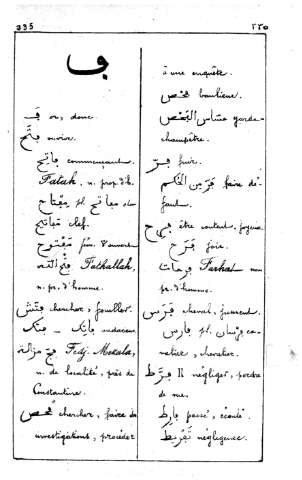 335
٢٢٥
ف
فَ or, donc.
فتح ouvrir.
فاتح commençant.
Fatah, n. prop. d'h.
مفتاح pl. مفاتح ou
مفاتيح clef.
مفتوح fém. ة ouvert
فتح الله Fathallah,
n. pr. d'homme.
فتش chercher, fouiller.
فتك – فاتك audacieux
فج مزالة Fedj-Mezala,
n. de localité, près de
Constantine.
فحص chercher, faire des
investigations, procéder
à une enquête.
فحص banlieue.
عسّاس الفحص garde-
champêtre.
فرّ fuir.
فرّ من الحكم faire dé-
faut.
فرح être content, joyeux.
فرح joie.
فرحات Farhat nom
pr. d'homme.
فرس cheval, jument.
فارس pl. فرسان ca-
valier, chevalier.
فرّط II négliger, perdre
de vue.
فارط passé, écoulé.
تفريط négligence.